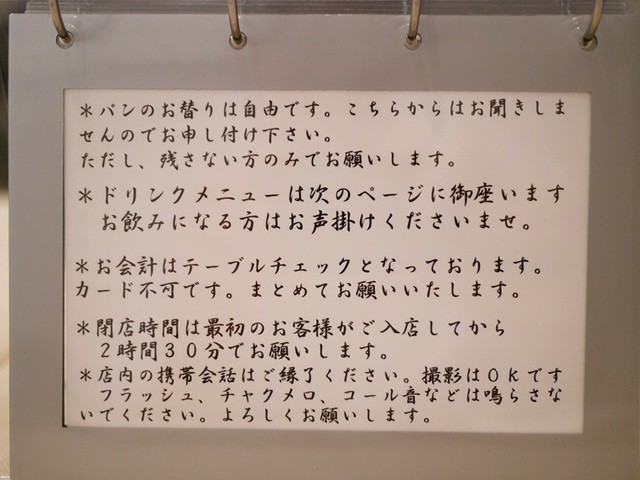 ＊パンのお替りは自由です。こちらからはお聞きしま
せんのでお申し付け下さい。
ただし、残さない方のみでお願いします。
＊ドリンクメニューは次のページに御座います
お飲みになる方はお声掛けくださいませ。
＊お会計はテーブルチェックとなっております。
カード不可です。まとめてお願いいたします。
＊閉店時間は最初のお客様がご入店してから
２時間３０分でお願いします。
＊店内の携帯会話はご縁了ください。撮影はＯＫです
フラッシュ、チャクメロ、コール音などは鳴らさな
いでください。よろしくお願いします。